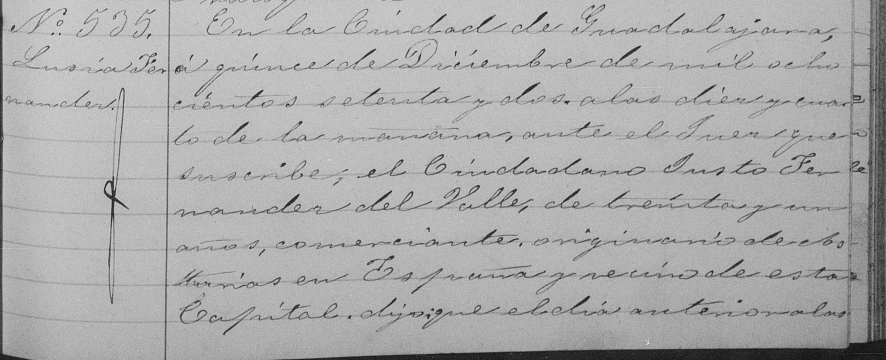 Nº 535.
Lusía Fer
nandez.
En la Ciudad de Guadalajara,
á quince de Diciembre de mil ocho
cientos setenta y dos. a las diez y cuar
to de la mañana, ante el Juez que
suscribe, el Ciudadano Justo Fer
nandez del Valle, de treinta y un
años, comerciante, originario de As
turias en España y vecino de esta
Capital. dijo: que el día anterior a las